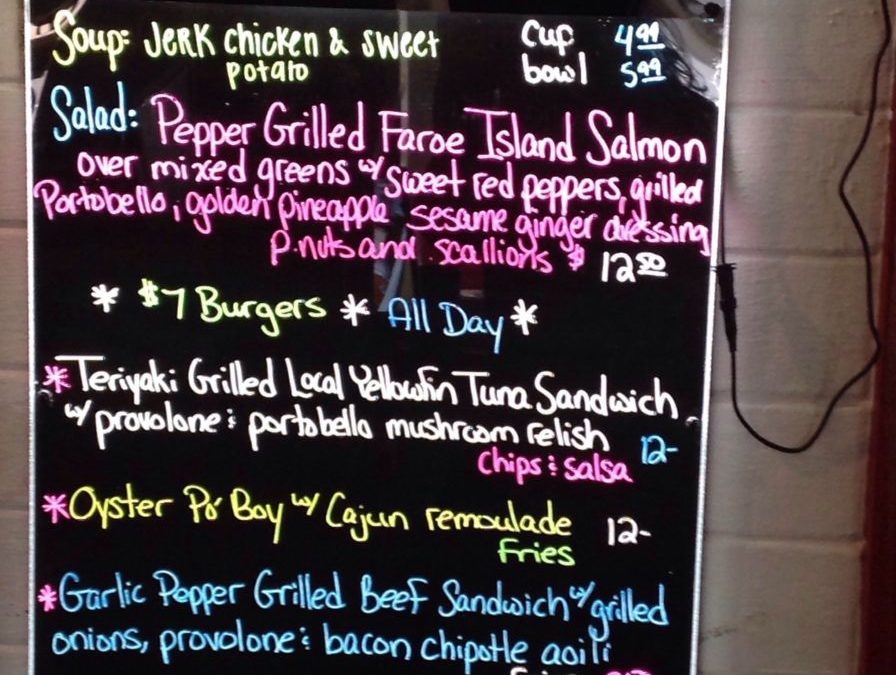 Soup: Jerk chicken & sweet potato
cup 4.99
bowl 5.99
Salad: Pepper Grilled Faroe Island Salmon
over mixed greens w/ sweet red peppers, grilled
Portobello, golden pineapple sesame ginger dressing
P.nuts and scallions $ 12.50
* $7 Burgers * All Day *
*Teriyaki Grilled Local Yellowfin Tuna Sandwich
w/ provolone & portobello mushroom relish 12-
chips & salsa
*Oyster Po' Boy w/ Cajun remoulade 12-
Fries
*Garlic Pepper Grilled Beef Sandwich w/ grilled
onions, provolone & bacon chipotle aoili